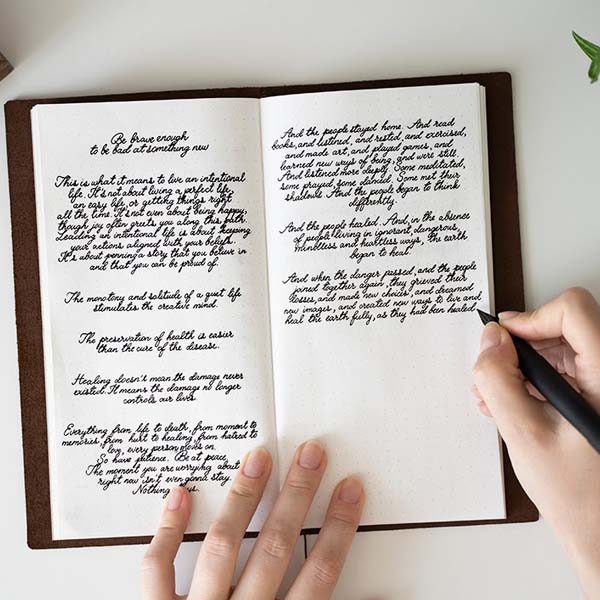 Be brave enough
to be bad at something new
This is what it means to live an intentional
life. It's not about living a perfect life,
an easy life, or getting things right
all the time. It's not even about being happy,
though joy often greets you along this path.
Leading an intentional life is about keeping
your actions aligned with your beliefs.
It's about penning a story that you believe in
and that you can be proud of.
The monotony and solitude of a quiet life
stimulates the creative mind.
The preservation of health is easier
than the cure of the disease.
Healing doesn't mean the damage never
existed. It means the damage no longer
controls our lives.
Everything from life to death, from moment to
memories, from hurt to healing, from hatred to
love, every person moves on.
So have patience. Be at peace,
The moment you are worrying about
right now isn't even gonna stay.
Nothing
And the people stayed home. And read
books, and listened, and rested, and exercised,
and made art, and played games, and
learned new ways of being, and were still.
And listened more deeply. Some meditated,
some prayed, some danced. Some met their
shadows. And the people began to think
differently.
And the people healed. And, in the absence
of people living in ignorant, dangerous,
mindless and heartless ways, the earth
began to heal.
And when the danger passed, and the people
joined together again, they grieved their
losses, and made new choices, and dreamed
new images, and created new ways to live and
heal the earth fully, as they had been healed